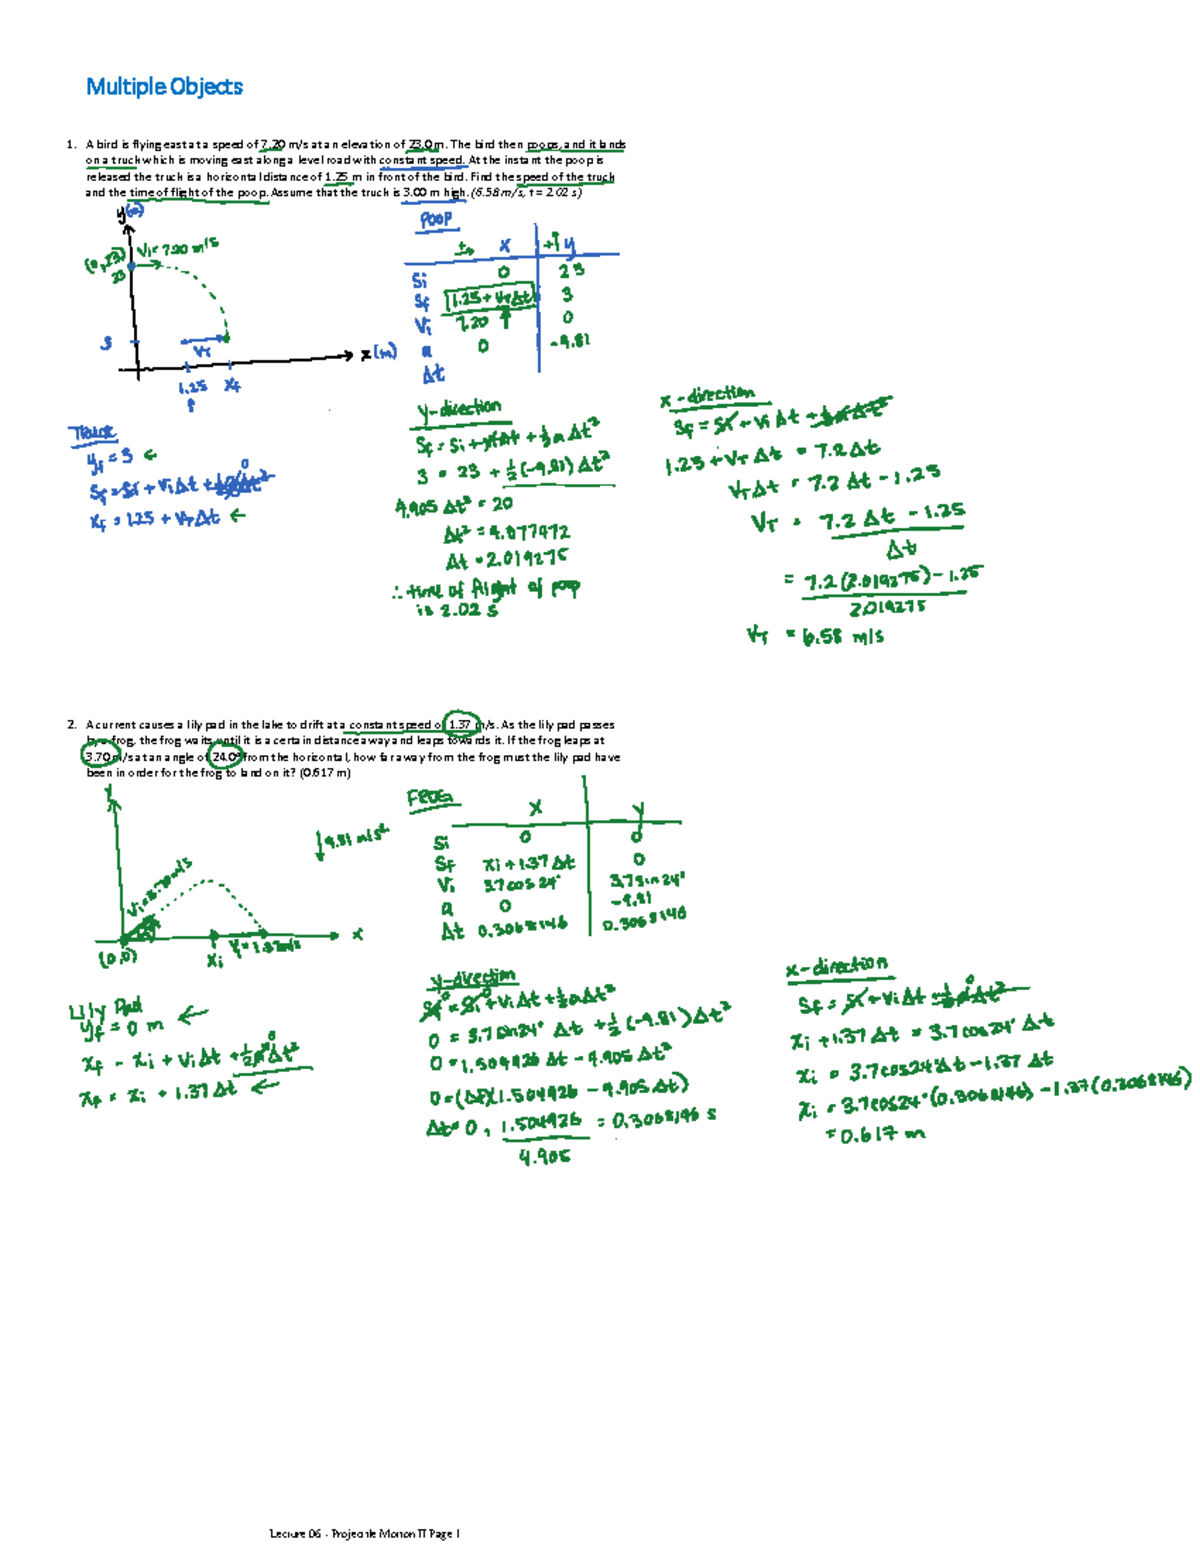 Multiple Objects
1. A bird is flying east at a speed of 7.20 m/s at an elevation of 23.0 m. The bird then poops, and it lands
on a truck which is moving east along a level road with constant speed. At the instant the poop is
released the truck is a horizontal distance of 1.25 m in front of the bird. Find the speed of the truck
and the time of flight of the poop. Assume that the truck is 3.00 m high. (6.58 m/s, t = 2.02 s)
y(m)
(0, 23)
23
Vi = 7.20 m/s
3
VT
x (m)
1.25 xf
POOP
x +↑ y
Si 0 23
Sf 1.25 + VTΔt 3
Vi 7.20 0
a 0 -9.81
Δt
Truck
yf = 3 ←
Sf = Si + ViΔt + ½aΔt² 0
xf = 1.25 + VTΔt ←
y-direction
Sf = Si + ViΔt + ½aΔt²
3 = 23 + ½(-9.81)Δt²
4.905 Δt² = 20
Δt² = 4.077472
Δt = 2.019275
∴ time of flight of poop
is 2.02 s
x-direction
Sf = Si + ViΔt + ½aΔt²
1.25 + VTΔt = 7.2Δt
VTΔt = 7.2Δt - 1.25
VT = 7.2Δt - 1.25
Δt
= 7.2(2.019275) - 1.25
2.019275
VT = 6.58 m/s
2. A current causes a lily pad in the lake to drift at a constant speed of 1.37 m/s. As the lily pad passes
by a frog, the frog waits until it is a certain distance away and leaps towards it. If the frog leaps at
3.70 m/s at an angle of 24.0° from the horizontal, how far away from the frog must the lily pad have
been in order for the frog to land on it? (0.617 m)
Y
↓9.81 m/s²
Vi = 3.70 m/s
(0,0)
xi
V = 1.37 m/s
x
FROG
X Y
Si 0 0
Sf xi + 1.37Δt 0
Vi 3.7cos24° 3.7sin24°
a 0 -9.81
Δt 0.3068146 0.3068146
Lily Pad
yf = 0 m ←
xf = xi + ViΔt + ½aΔt² 0
xf = xi + 1.37Δt ←
y-direction
Sf 0 = Si 0 + ViΔt + ½aΔt²
0 = 3.7sin24° Δt + ½(-9.81)Δt²
0 = 1.504926 Δt - 4.905Δt²
0 = (Δt)(1.504926 - 4.905Δt)
Δt = 0, 1.504926 = 0.3068146 s
4.905
x-direction
Sf = Si + ViΔt + ½aΔt² 0
xi + 1.37Δt = 3.7cos24° Δt
xi = 3.7cos24°Δt - 1.37Δt
xi = 3.7cos24°(0.3068146) - 1.37(0.3068146)
= 0.617 m
Lecture 06 - Projectile Motion II Page 1